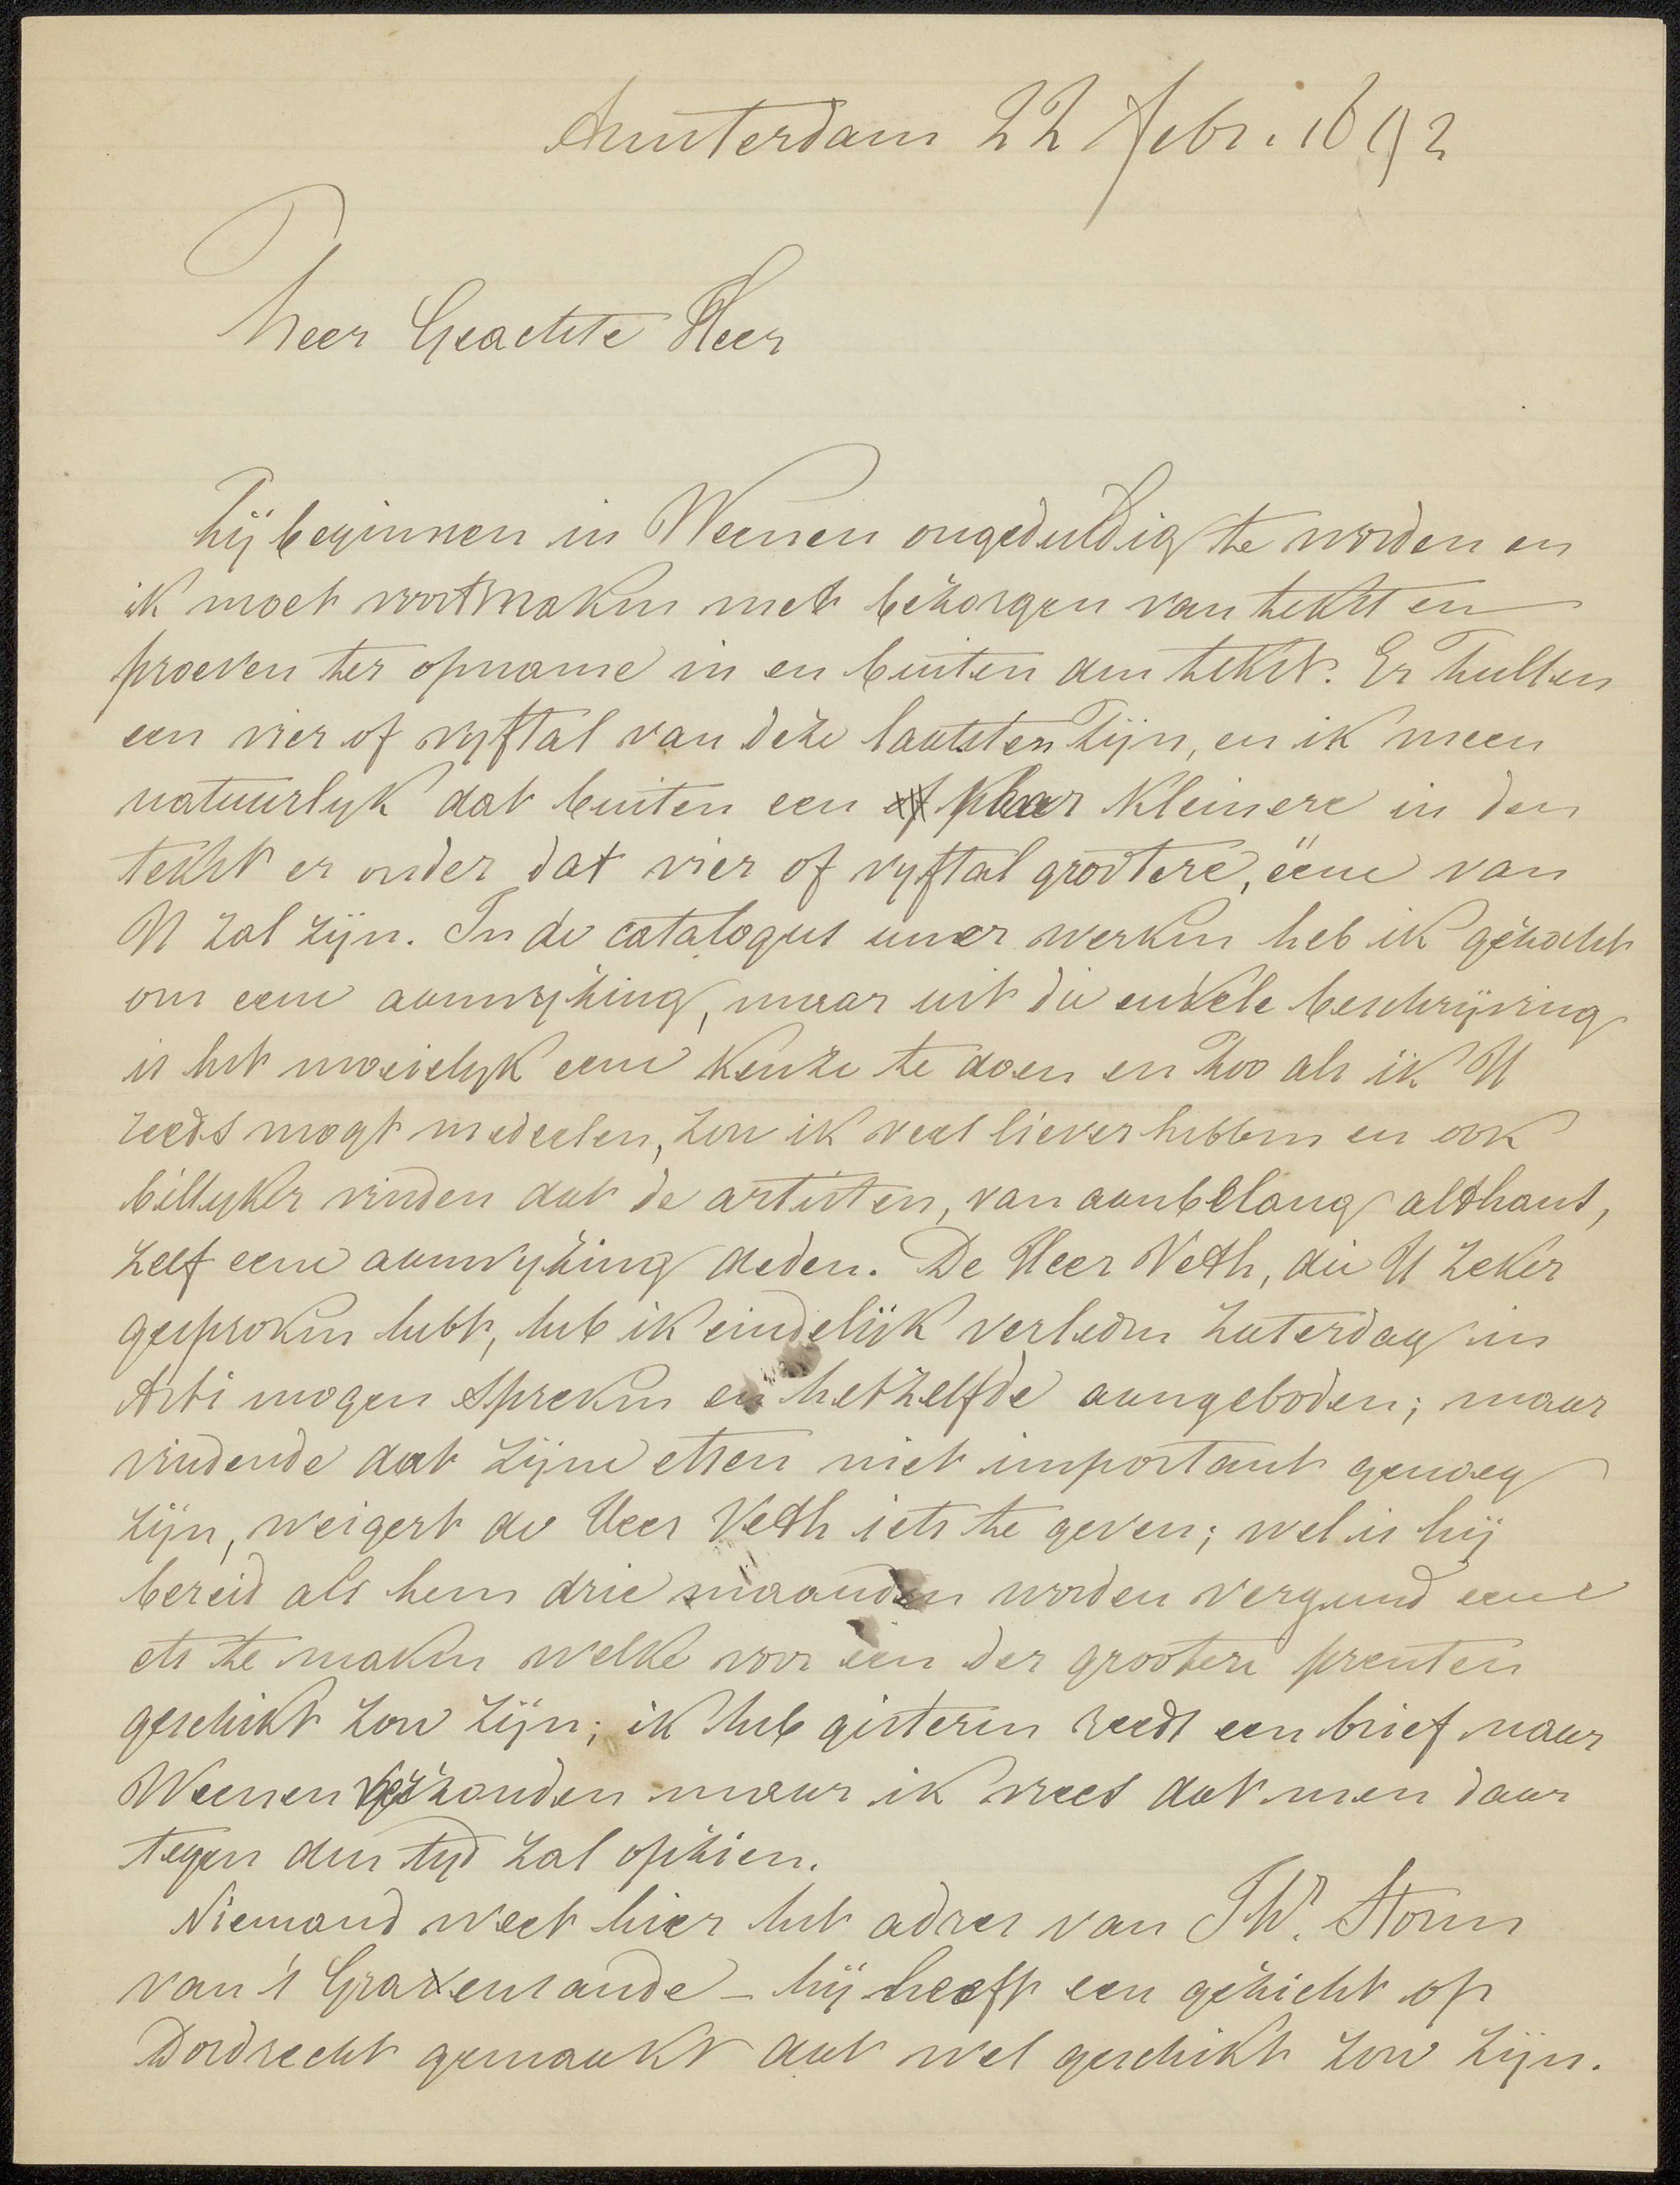 Amsterdam 22 Febr. 1892
Zeer Geachte Heer
Zij beginnen in Weenen ongeduldig te worden en
ik moet voortmaken met bezorgen van tekst en
proeven ter opname in en buiten den tekst. Er zullen
een vier of vyftal van deze laatsten zijn, en ik meen
natuurlyk dat buiten een paar kleinere in den
tekst er onder dat vier of vyftal grootere, ééne van
U zal zijn. In de catalogus uwer werken heb ik gezocht
om eene aanwyzing, maar uit die enkele beschrijving
is het moeielyk eene keuze te doen en zoo als ik U
reeds mogt mededelen, zou ik veel liever hebben en ook
billyker vinden dat de artisten, van aanbelang althans,
zelf eene aanwyzing deden. De Heer Veth, die U zeker
gesproken hebt, heb ik eindelijk verleden Zaterdag in
Arti mogen spreken en hetzelfde aangeboden; maar
vindende dat zijne etsen niet important genoeg
zijn, weigert de Heer Veth iets te geven; wel is hij
bereid als hem drie maanden worden vergund eene
ets te maken welke voor één der grootere prenten
geschikt zou zijn; ik heb gisteren reeds een brief naar
Weenen verzonden maar ik vrees dat men daar
tegen den tyd zal opzien.
Niemand weet hier het adres van Jhr. Storm
van 's Gravensande – hij heeft een gezicht op
Dordrecht gemaakt dat wel geschikt zou zijn.